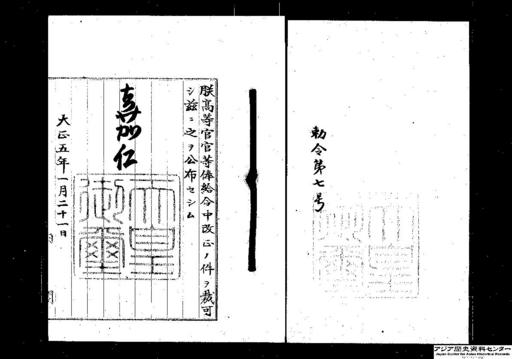 勅令第七号
朕高等官官等俸給令中改正ノ件ヲ裁可
シ茲ニ之ヲ公布セシム
嘉仁
天皇御璽
大正五年一月二十一日
アジア歴史資料センター
Japan Center for Asian Historical Records